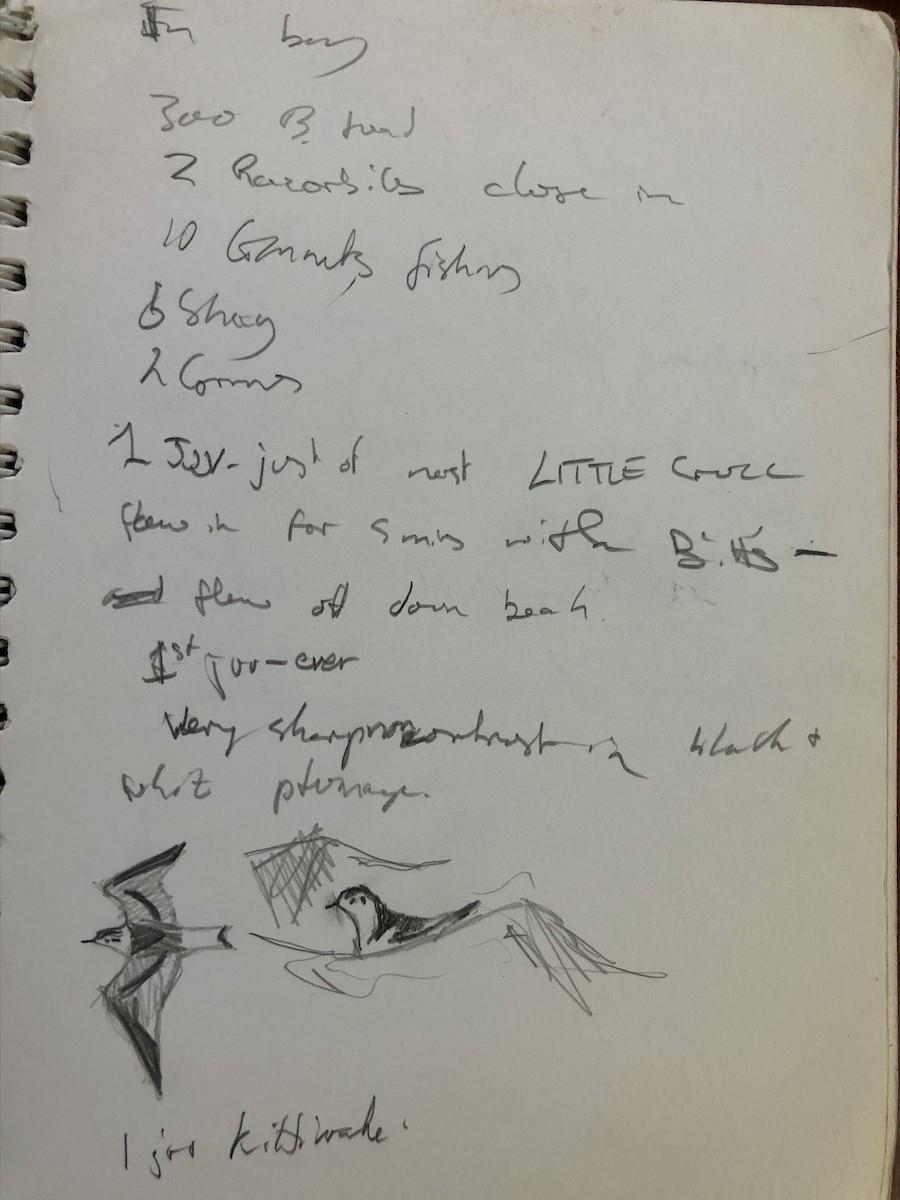 In bay
300 B head
2 Razorbills close in
10 Gannets fishing
6 Shag
2 Corms
1 Juv - just of nest LITTLE GULL
flew in for 5 mins with
and flew off down beach.
1st juv - ever
Very sharp contrast in black +
white plumage.
1 juv Kittiwake.